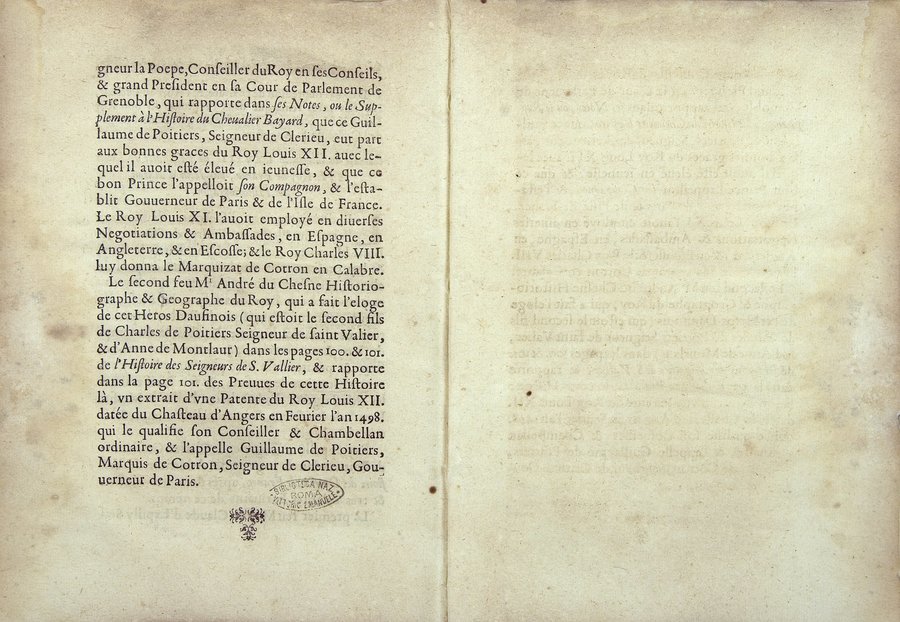 gneur la Poepe, Conſeiller du Roy en ſes Conſeils,
& grand Preſident en ſa Cour de Parlement de
Grenoble, qui rapporte dans ſes Notes, ou le Sup-
plement à l'Hiſtoire du Cheualier Bayard, que ce Guil-
laume de Poitiers, Seigneur de Clerieu, eut part
aux bonnes graces du Roy Louis XII. auec le-
quel il auoit eſté éleué en ieuneſſe, & que ce
bon Prince l'appelloit ſon Compagnon, & l'eſta-
blit Gouuerneur de Paris & de l'Iſle de France.
Le Roy Louis XI. l'auoit employé en diuerſes
Negotiations & Ambaſſades, en Eſpagne, en
Angleterre, & en Eſcoſſe; & le Roy Charles VIII.
luy donna le Marquizat de Cotron en Calabre.
Le ſecond feu Mr André du Cheſne Hiſtorio-
graphe & Geographe du Roy, qui a fait l'eloge
de cet Heros Daufinois (qui eſtoit le ſecond fils
de Charles de Poitiers Seigneur de ſaint Valier,
& d'Anne de Montlaur) dans les pages 100. & 101.
de l'Hiſtoire des Seigneurs de S. Vallier, & rapporte
dans la page 101. des Preuues de cette Hiſtoire
là, vn extrait d'vne Patente du Roy Louis XII.
datée du Chaſteau d'Angers en Feurier l'an 1498.
qui le qualifie ſon Conſeiller & Chambellan
ordinaire, & l'appelle Guillaume de Poitiers,
Marquis de Cotron, Seigneur de Clerieu, Gou-
uerneur de Paris.
BIBLIOTECA NAZ.
ROMA
VITTORIO EMANUELE